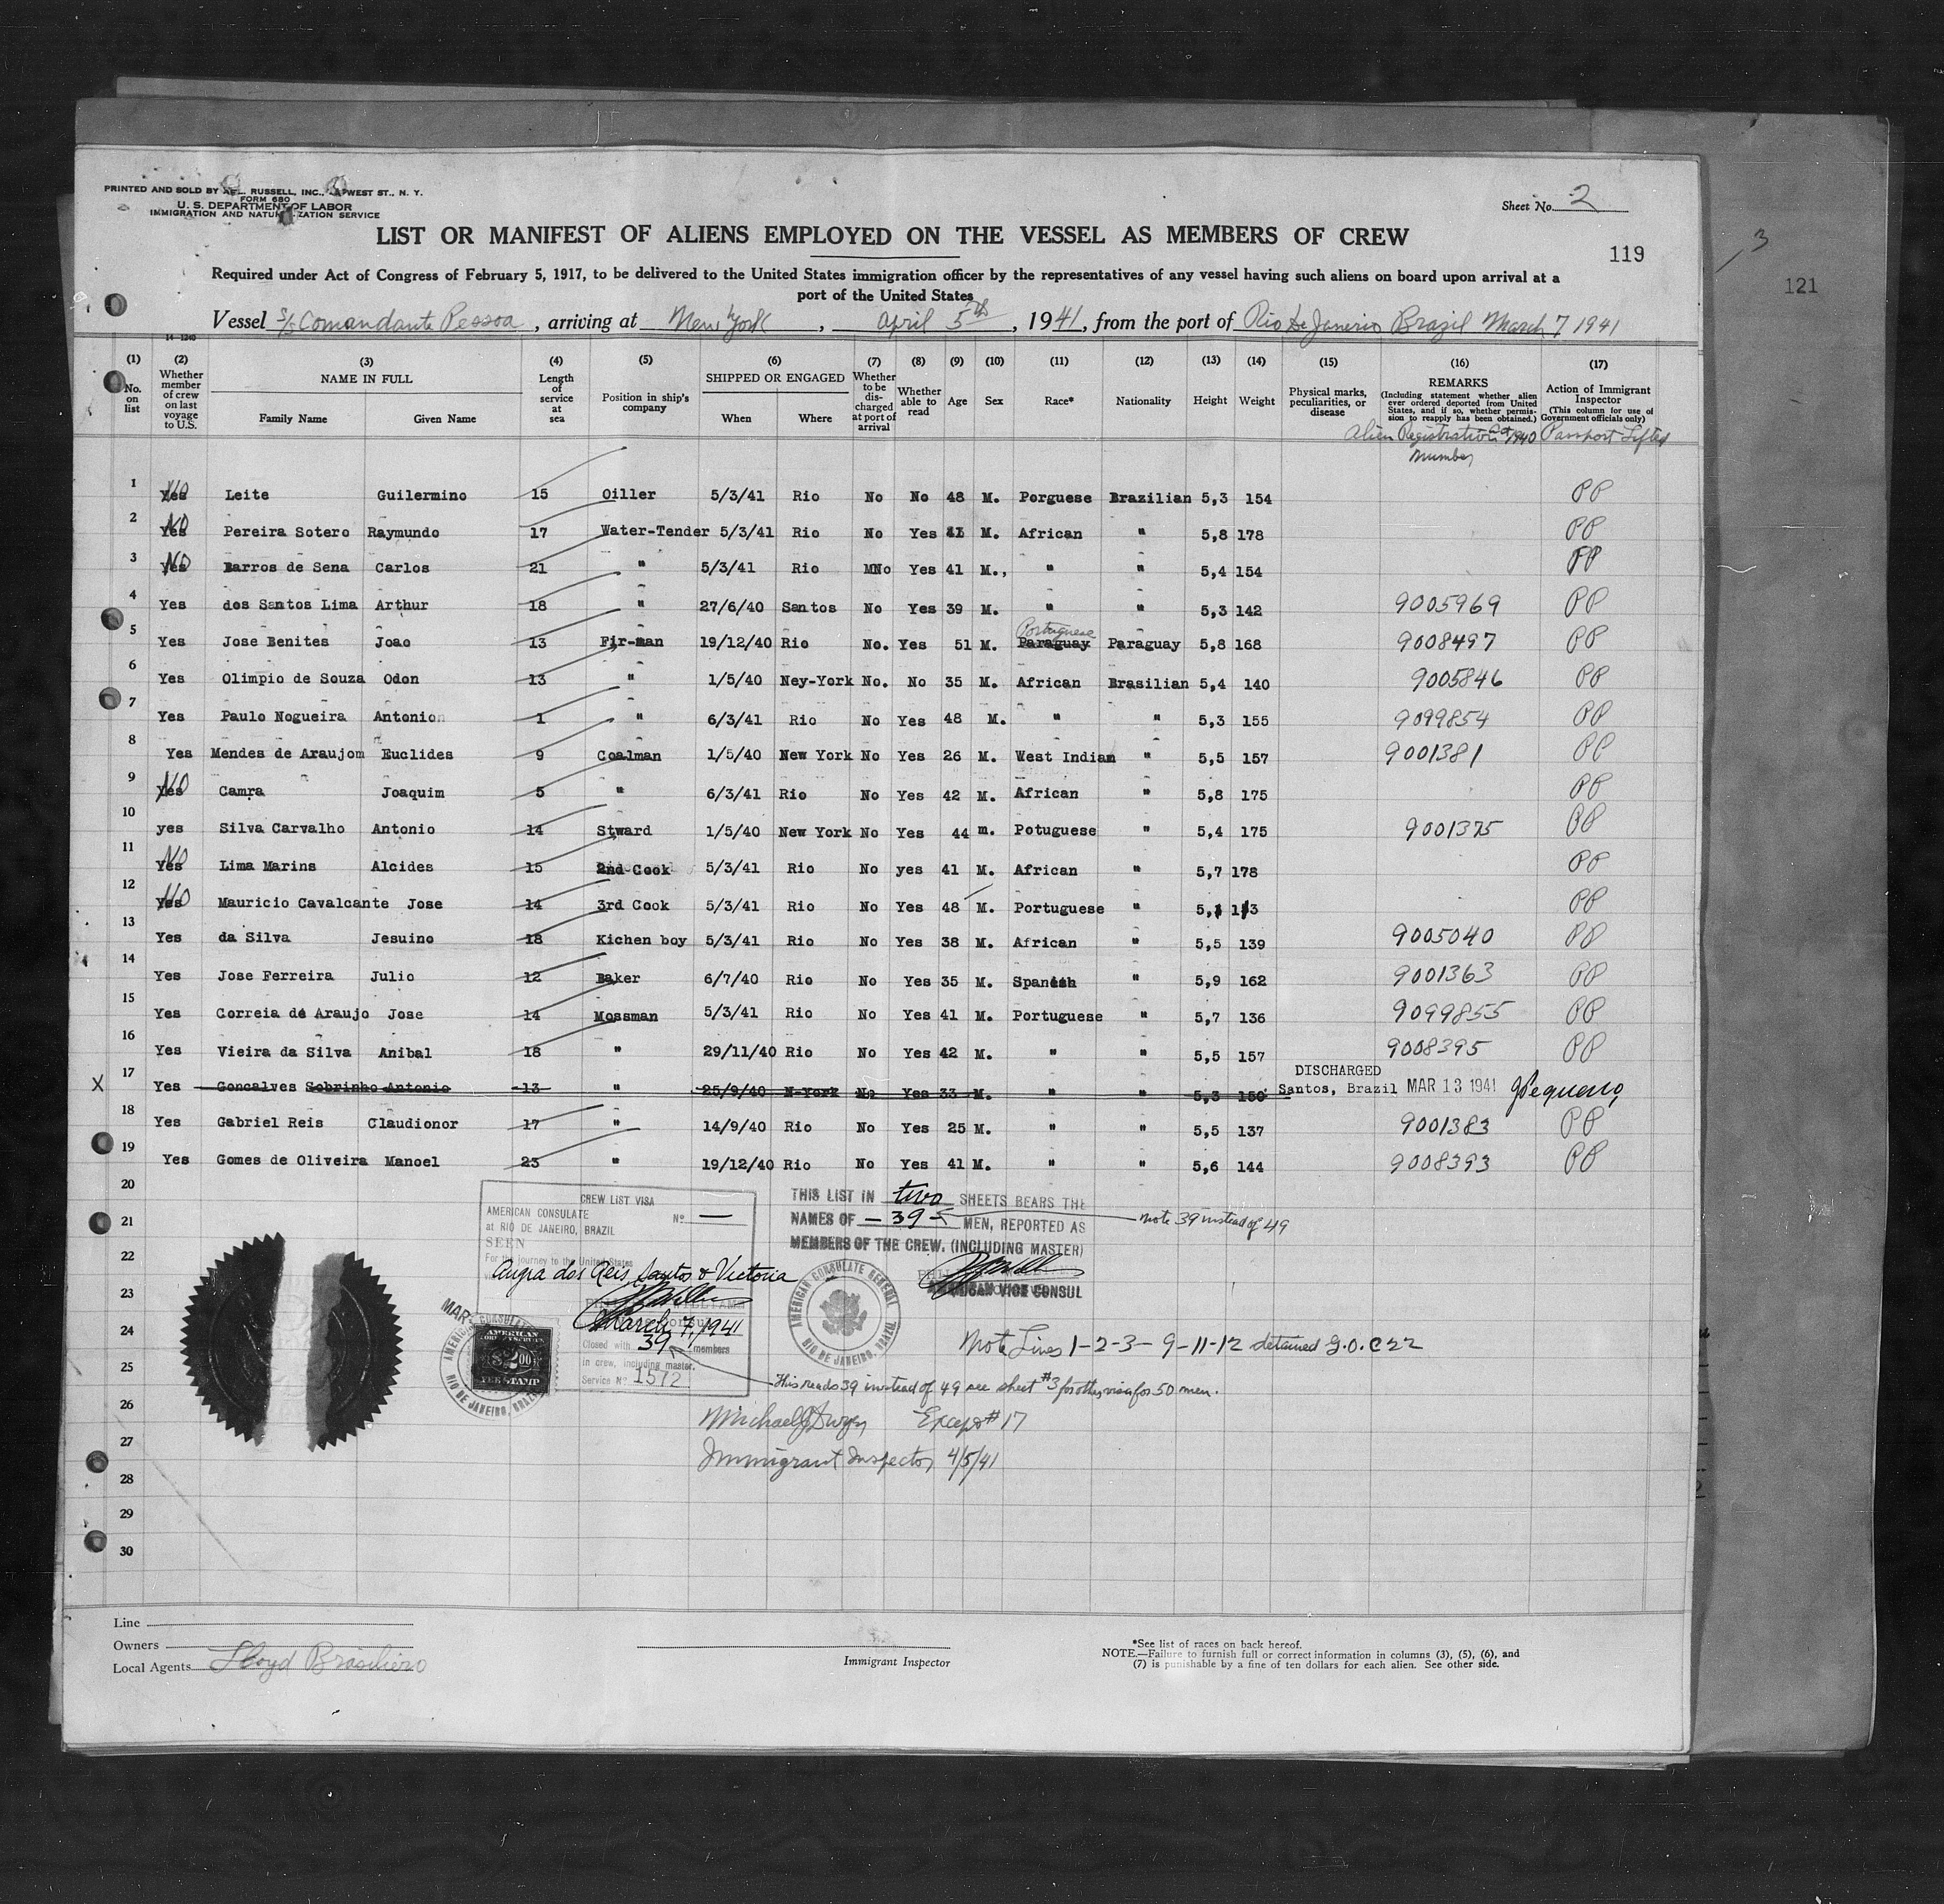 PRINTED AND SOLD BY RUSSELL, INC., WEST ST., N. Y.
FORM 680
U. S. DEPARTMENT OF LABOR
IMMIGRATION AND NATURALIZATION SERVICE
Sheet No. 2
LIST OR MANIFEST OF ALIENS EMPLOYED ON THE VESSEL AS MEMBERS OF CREW
119
3
121
Required under Act of Congress of February 5, 1917, to be delivered to the United States immigration officer by the representatives of any vessel having such aliens on board upon arrival at a
port of the United States
Vessel S/S Comandante Pessoa, arriving at New York, April 5th, 1941, from the port of Rio De Janerio Brazil March 7 1941
14-1240
(1) (2) (3) (4) (5) (6) (7) (8) (9) (10) (11) (12) (13) (14) (15) (16) (17)
No. on list
Whether member of crew on last voyage to U.S.
NAME IN FULL
Family Name Given Name
Length of service at sea
Position in ship's company
SHIPPED OR ENGAGED
When Where
Whether to be discharged at port of arrival
Whether able to read
Age Sex Race* Nationality Height Weight
Physical marks, peculiarities, or disease
REMARKS
(Including statement whether alien ever ordered deported from United States, and if so, whether permission to reapply has been obtained.)
Action of Immigrant Inspector
(This column for use of Government officials only)
Alien Registration Act 1940 Number
Passport Lifted
1 Yes NO Leite Guilermino 15 Oiller 5/3/41 Rio No No 48 M. Porguese Brazilian 5,3 154 PP
2 Yes NO Pereira Sotero Raymundo 17 Water-Tender 5/3/41 Rio No Yes M. African " 5,8 178 PP
3 Yes NO Barros de Sena Carlos 21 " 5/3/41 Rio MNo Yes 41 M., " " 5,4 154 PP
4 Yes dos Santos Lima Arthur 18 " 27/6/40 Santos No Yes 39 M. " " 5,3 142 9005969 PP
5 Yes Jose Benites Joao 13 Fir-man 19/12/40 Rio No. Yes 51 M. Paraguay Portuguese Paraguay 5,8 168 9008497 PP
6 Yes Olimpio de Souza Odon 13 " 1/5/40 Ney-York No. No 35 M. African Brasilian 5,4 140 9005846 PP
7 Yes Paulo Nogueira Antonio 1 " 6/3/41 Rio No Yes 48 M. " " 5,3 155 9099854 PP
8 Yes Mendes de Araujom Euclides 9 Coalman 1/5/40 New York No Yes 26 M. West Indian " 5,5 157 9001381 PP
9 Yes NO Camra Joaquim 5 " 6/3/41 Rio No Yes 42 M. African " 5,8 175 PP
10 yes Silva Carvalho Antonio 14 Stward 1/5/40 New York No Yes 44 m. Potuguese " 5,4 175 9001375 PP
11 Yes NO Lima Marins Alcides 15 2nd Cook 5/3/41 Rio No yes 41 M. African " 5,7 178 PP
12 Yes NO Mauricio Cavalcante Jose 14 3rd Cook 5/3/41 Rio No Yes 48 M. Portuguese " PP
13 Yes da Silva Jesuino 18 Kichen boy 5/3/41 Rio No Yes 38 M. African " 5,5 139 9005040 PP
14 Yes Jose Ferreira Julio 12 Baker 6/7/40 Rio No Yes 35 M. Spanish " 5,9 162 9001363 PP
15 Yes Correia de Araujo Jose 14 Mossman 5/3/41 Rio No Yes 41 M. Portuguese " 5,7 136 9099855 PP
16 Yes Vieira da Silva Anibal 18 " 29/11/40 Rio No Yes 42 M. " " 5,5 157 9008395 PP
DISCHARGED
X 17 Yes Goncalves Sobrinho Antonio 13 " 25/9/40 N-York No Yes 33 M. " " 5,3 150 Santos, Brazil MAR 13 1941
18 Yes Gabriel Reis Claudionor 17 " 14/9/40 Rio No Yes 25 M. " " 5,5 137 9001383 PP
19 Yes Gomes de Oliveira Manoel 23 " 19/12/40 Rio No Yes 41 M. " " 5,6 144 9008393 PP
20
21
22
23
24
25
26
27
28
29
30
CREW LIST VISA
AMERICAN CONSULATE Nº —
at RIO DE JANEIRO, BRAZIL
SEEN
For the journey to the United States
Angra dos Reis, Santos & Victoria
March 7, 1941
Closed with 39 members
in crew, including master.
Service Nº 1572
MAR
AMERICAN
$2.00
FEE STAMP
THIS LIST IN two SHEETS BEARS THE
NAMES OF — 39 — MEN, REPORTED AS
MEMBERS OF THE CREW. (INCLUDING MASTER)
Note 39 instead of 49
AMERICAN VICE CONSUL
AMERICAN CONSULATE GENERAL
RIO DE JANEIRO, BRAZIL
Note Lines 1-2-3-9-11-12 detained G.O. C 22
This reads 39 instead of 49 see sheet #3 for other visa for 50 men.
Michael J Dwyer Except #17
Immigrant Inspector 4/5/41
Line
Owners
Local Agents Lloyd Brasiliero
Immigrant Inspector
*See list of races on back hereof.
NOTE.—Failure to furnish full or correct information in columns (3), (5), (6), and
(7) is punishable by a fine of ten dollars for each alien. See other side.